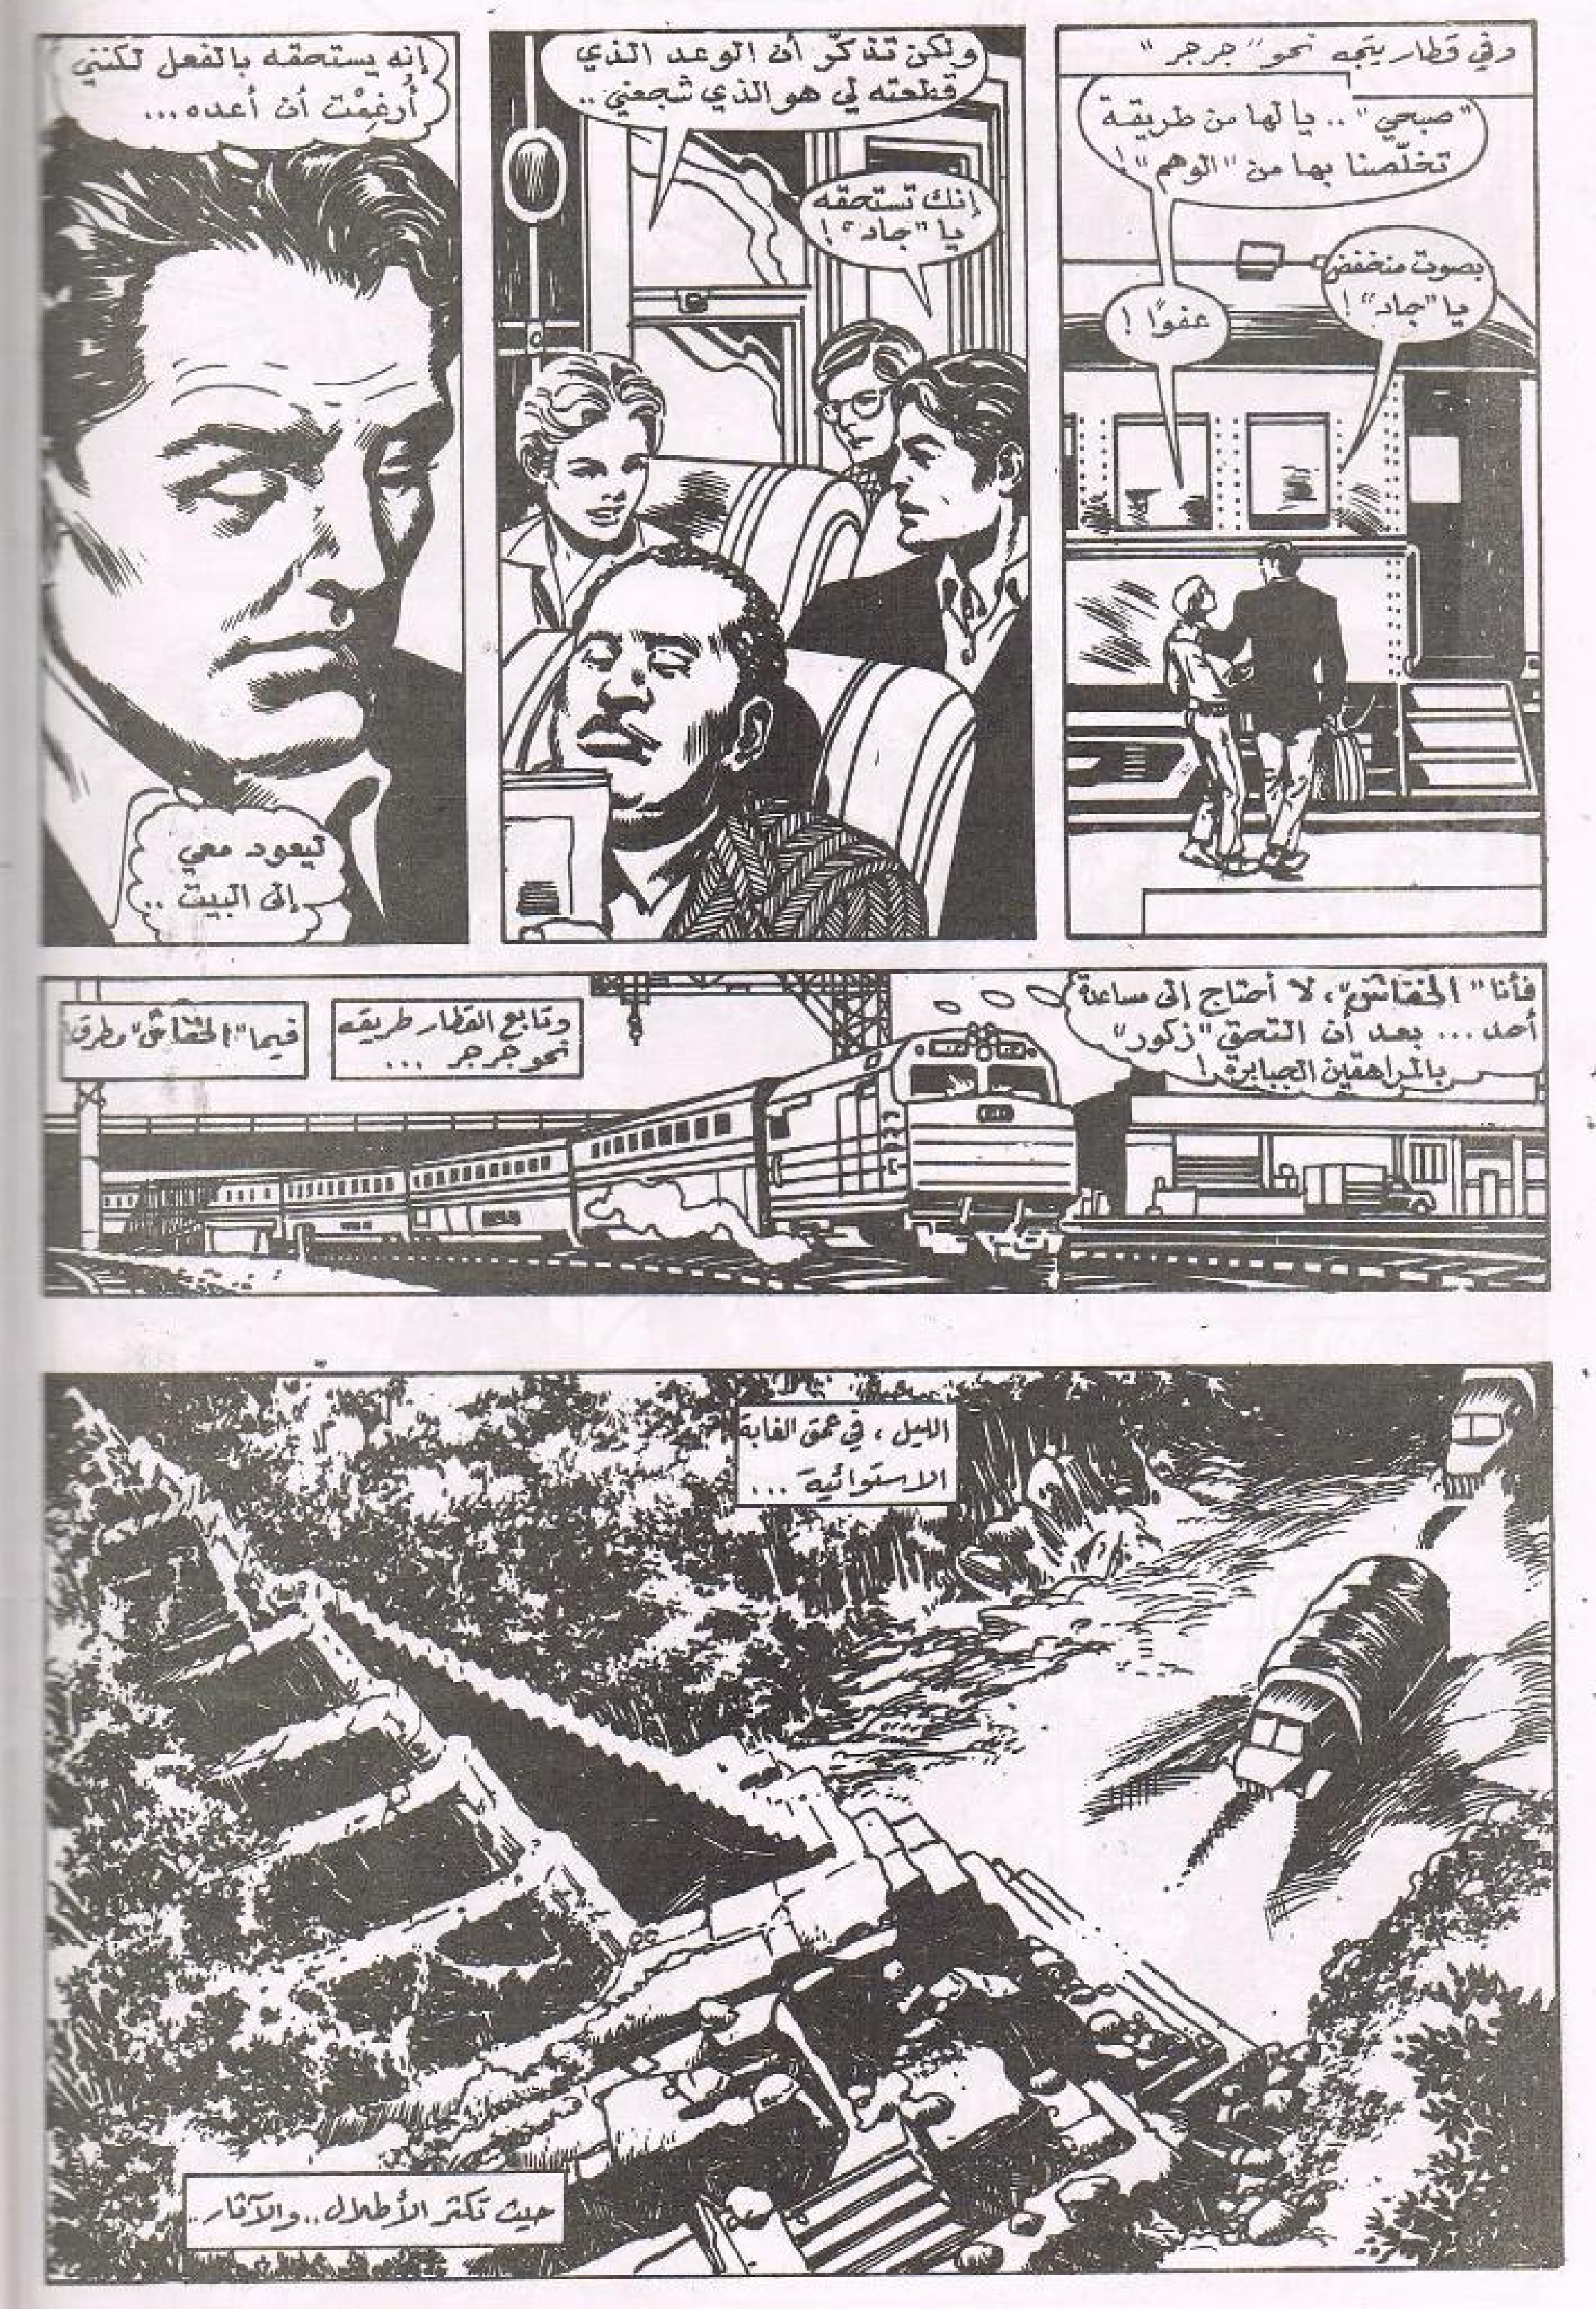 وفي قطار يتجه نحو "جرجر"
"صبحي".. يا لها من طريقة
تخلّصنا بها من "الوهم"!
بصوت منخفض
يا "جاد"!
عفوًا!
ولكن تذكّر أن الوعد الذي
قطعته لي هو الذي شجعني..
إنك تستحقه
يا "جاد"!
إنه يستحقه بالفعل لكنني
أُرغِمْت أن أعده...
ليعود معي
إلى البيت..
فأنا "الخفاش"، لا أحتاج إلى مساعدة
أحد... بعد أن التحق "زكور"
بالمراهقين الجبابرة!
وتابع القطار طريقه
نحو جرجر ...
فيما "الخفاش" مطرق!
الليل، في عمق الغابة
الاستوائية ...
حيث تكثر الأطلال.. والآثار..